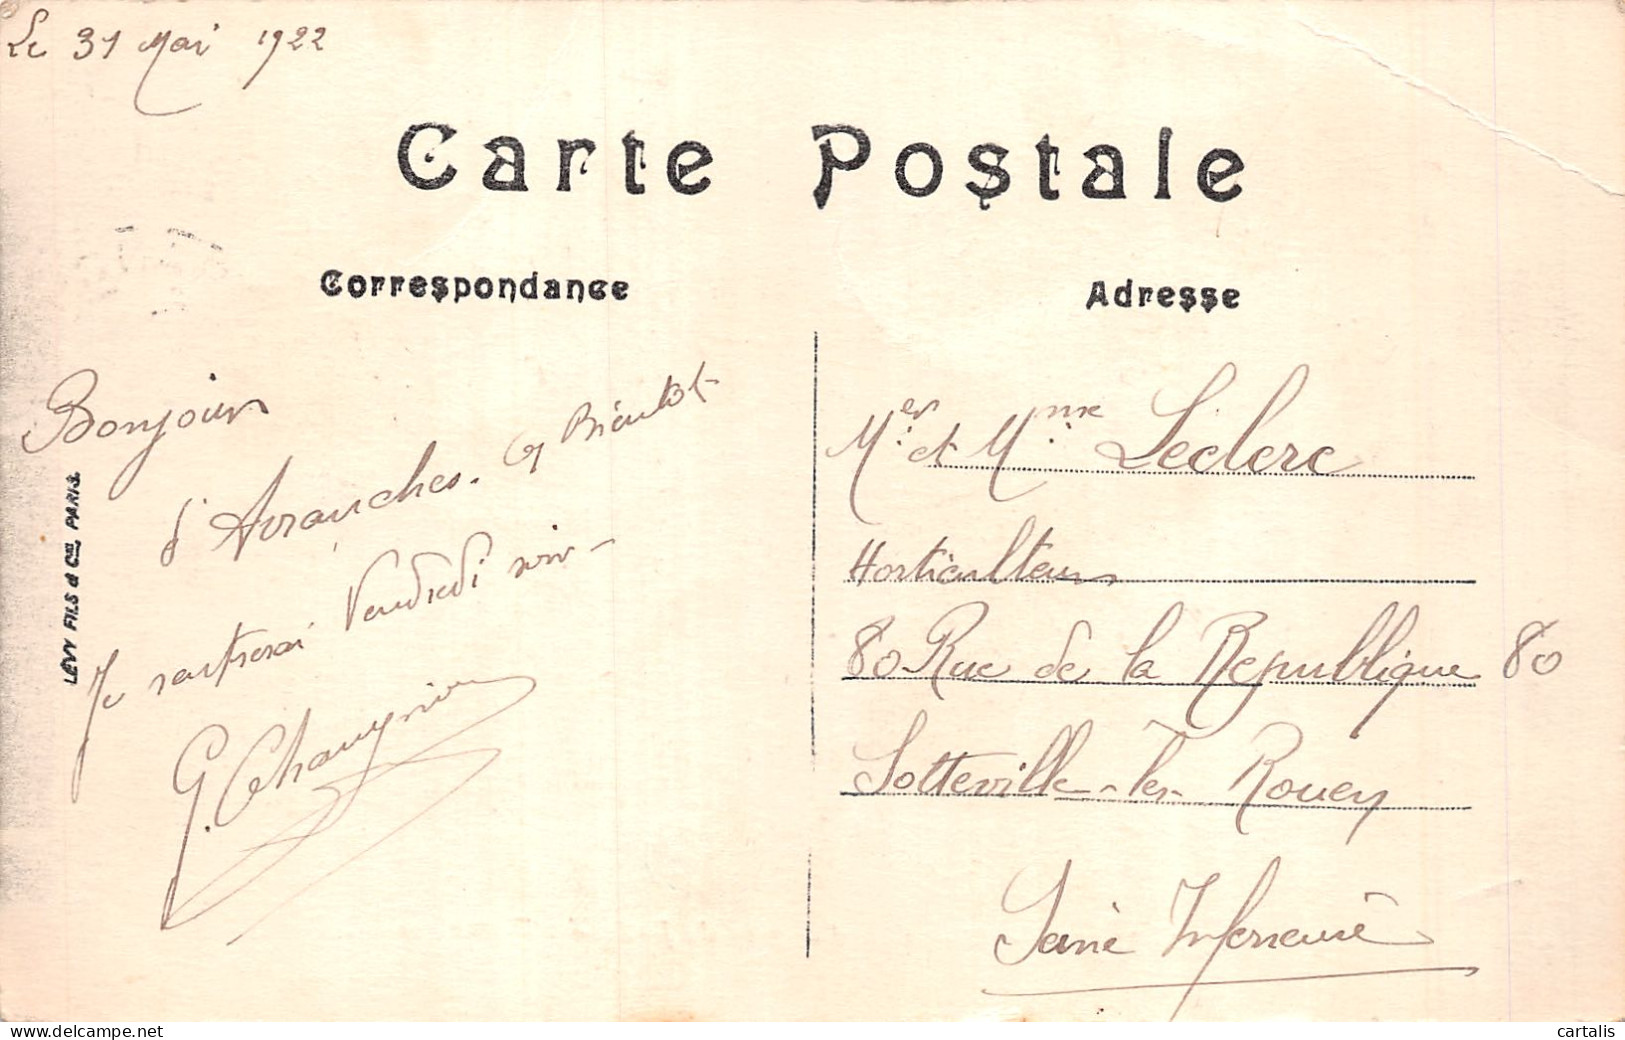 Le 31 Mai 1922
Carte Postale
Correspondance
Adresse
Bonjour
d'Avranches. Bientot
Je rentrerai Vendredi soir
G.
LÉVY FILS & Cie, PARIS.
Mer et Mme Leclerc
Horticulteurs
80 Rue de la Republique 80
Sotteville-les-Rouen
Seine Inferieure
cartalis
delcampe.net